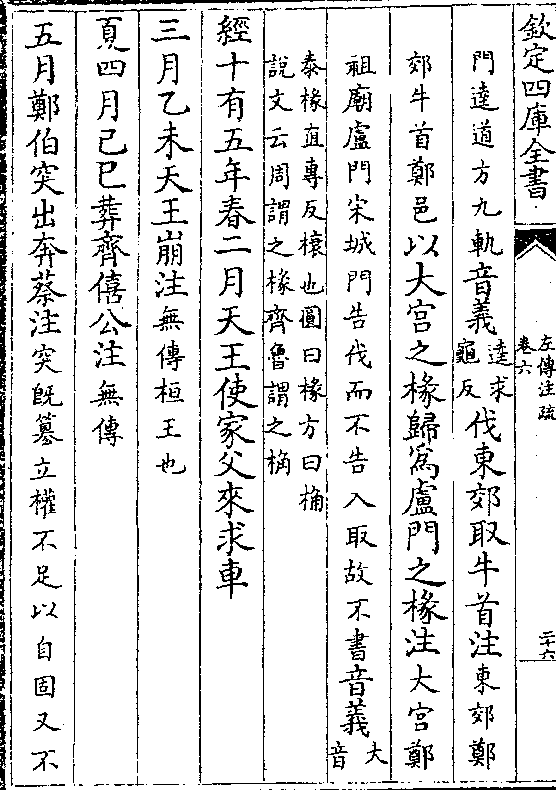 欽定四庫全書
左傳注疏
卷六
二十六
門逵道方九軌音義逵求龜反伐東郊取牛首注東郊鄭
郊牛首鄭邑以大宮之椽歸為盧門之椽注大宮鄭
祖廟盧門宋城門告伐而不告入取故不書音義大音
泰椽直專反榱也圓曰椽方曰桷
說文云周謂之椽齊魯謂之桷
經十有五年春二月天王使家父來求車
三月乙未天王崩注無傳桓王也
夏四月己巳葬齊僖公注無傳
五月鄭伯突出奔蔡注突既篡立權不足以自固又不